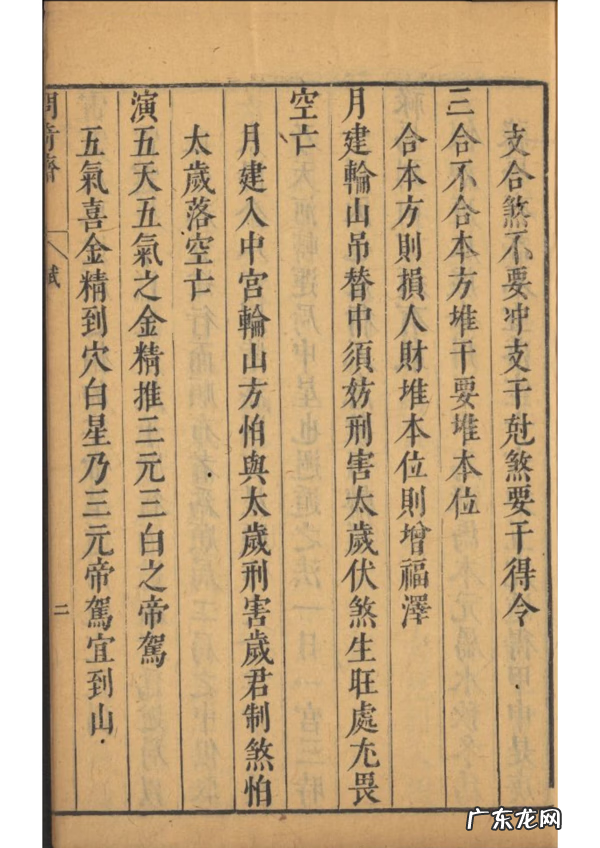 支合煞不要冲支干尅煞要干得令
三合不合本方堆干要堆本位
合本方則損人財堆本位則增福澤
月建輪山吊替中須妨刑害太歲伏煞生旺處尢畏
空亡
月建入中宮輪山方怕與太歲刑害歲君制煞怕
太歲落空亡
演五天五氣之金精推三元三白之帝駕
五氣喜金精到穴白星乃三元帝駕宜到山
賦
二
广东龙网